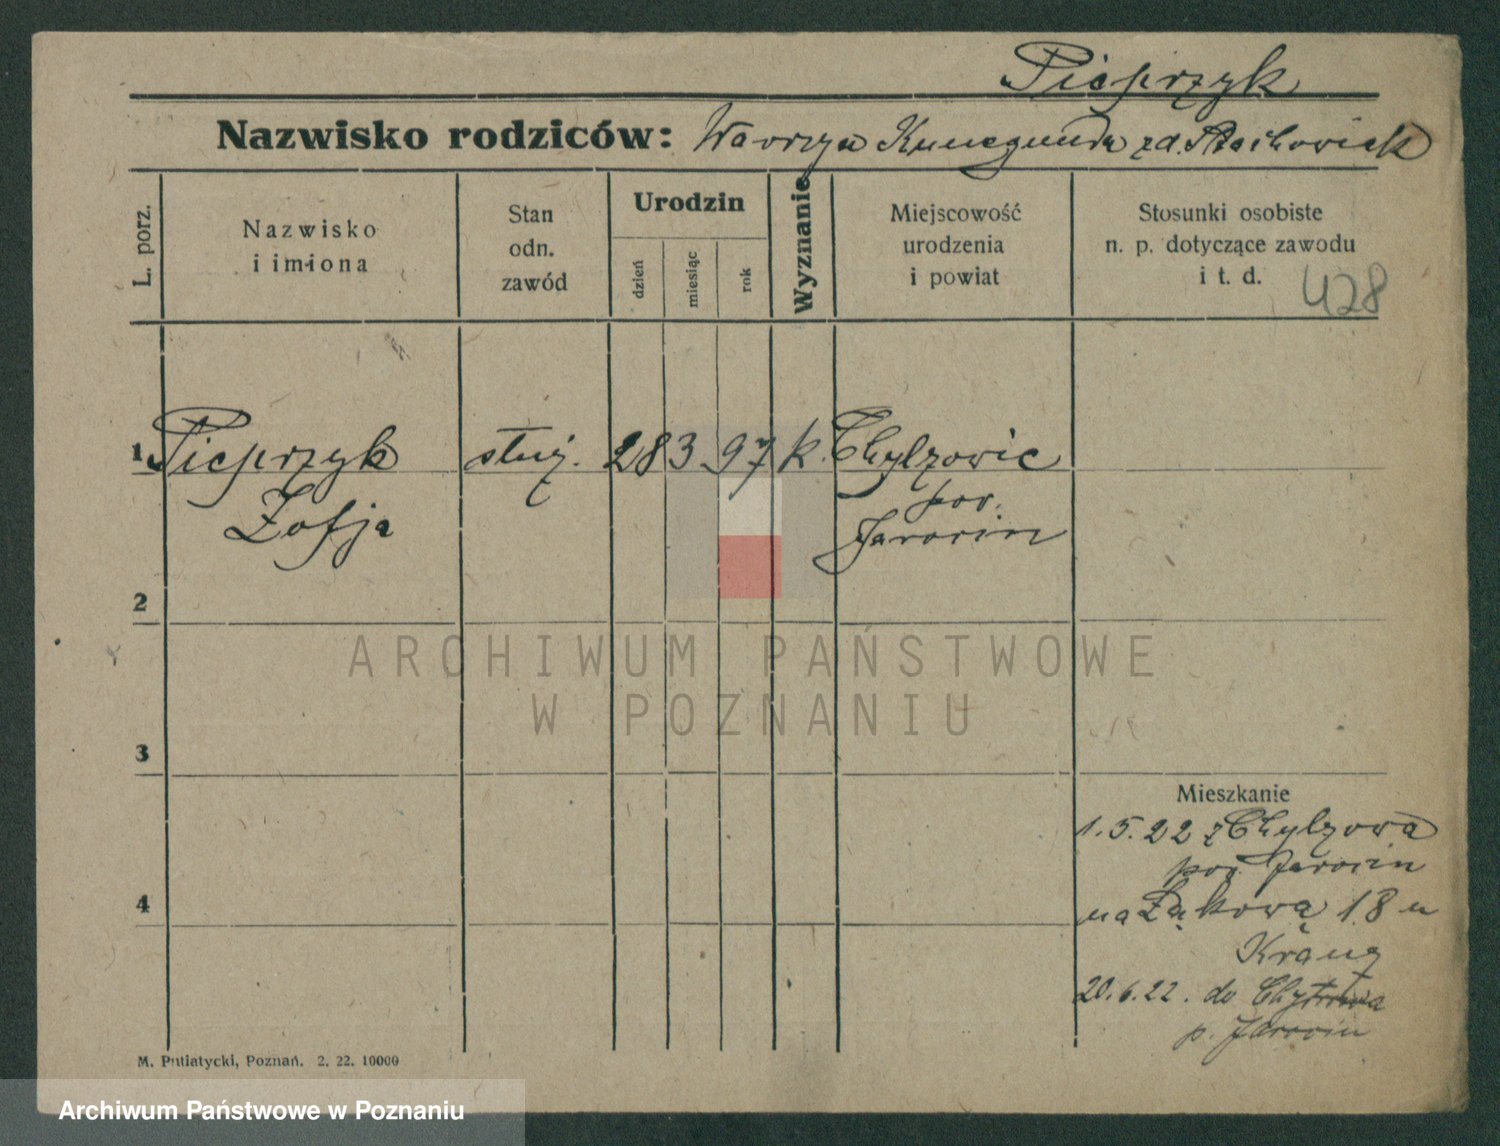 Pieprzyk
Nazwisko rodziców: Wawrzyn Kunegunda zd. Stachowiak
L. porz.
Nazwisko
i imiona
Stan
odn.
zawód
Urodzin
dzień
miesiąc
rok
Wyznanie
Miejscowość
urodzenia
i powiat
Stosunki osobiste
n. p. dotyczące zawodu
i t. d.
428
1 Pieprzyk służ. 28 3. 97 k. Chylzowic
Zofja
pow.
Jarocin
2
3
4
Mieszkanie
1.5.22 z Chylzowa
pow. Jarocin
na Łąkową 18 u
20.6.22. do
p. Jarocin
M. Putiatycki, Poznań. 2. 22. 10000
ARCHIWUM PAŃSTWOWE
W POZNANIU
Archiwum Państwowe w Poznaniu